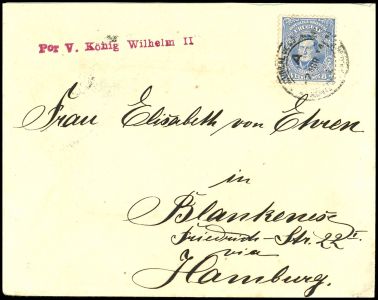 Por V. König Wilhelm II
URUGUAY
Frau Elisabeth von Ehren
in
Blankenese
Friedrich-Str. 22 I
via
Hamburg.